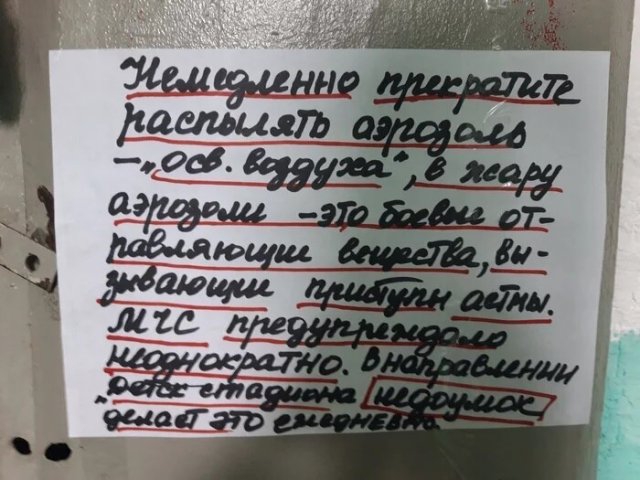 Немедленно прекратите
распылять аэрозоль
–„осв. воздуха“, в жару
аэрозоли –это боевые от-
равляющие вещества, вы-
зывающии приступы астмы.
МЧС предупреждало
неоднократно. В направлении
стадиона недоумок
делает это ежедневно.